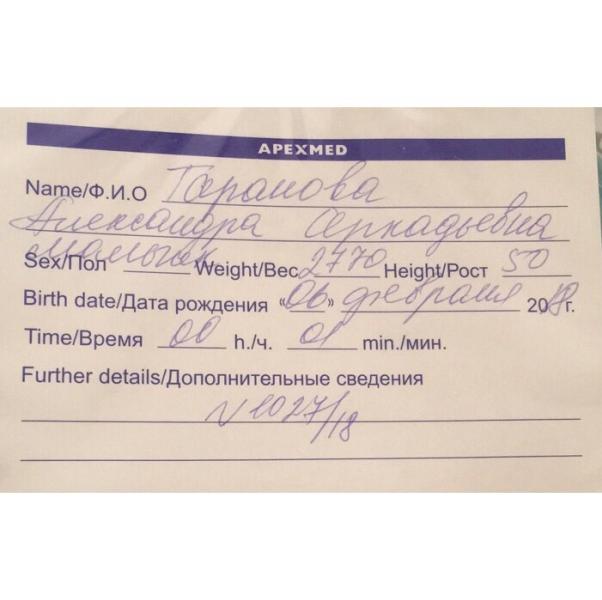 APEXMED
Name/Ф.И.О Таранова
Александра Аркадьевна
Sex/Пол мальчик Weight/Вес 2770 Height/Рост 50
Birth date/Дата рождения «06» февраля 2018г.
Time/Время 00 h./ч. 01 min./мин.
Further details/Дополнительные сведения
N 1027/18